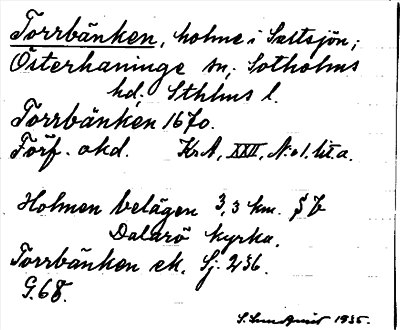 Torrbänken, holme i Saltsjön;
Österhaninge sn; Sotholms
hd; Sthlms l.
Torrbänken 1670.
Förf. okd. Kr.A, XXII, N:o 1. lit. a.
Holmen belägen 3,3 km. S
Dalarö kyrka.
Torrbänken ek. Sj. 236.
G.68.
1935.